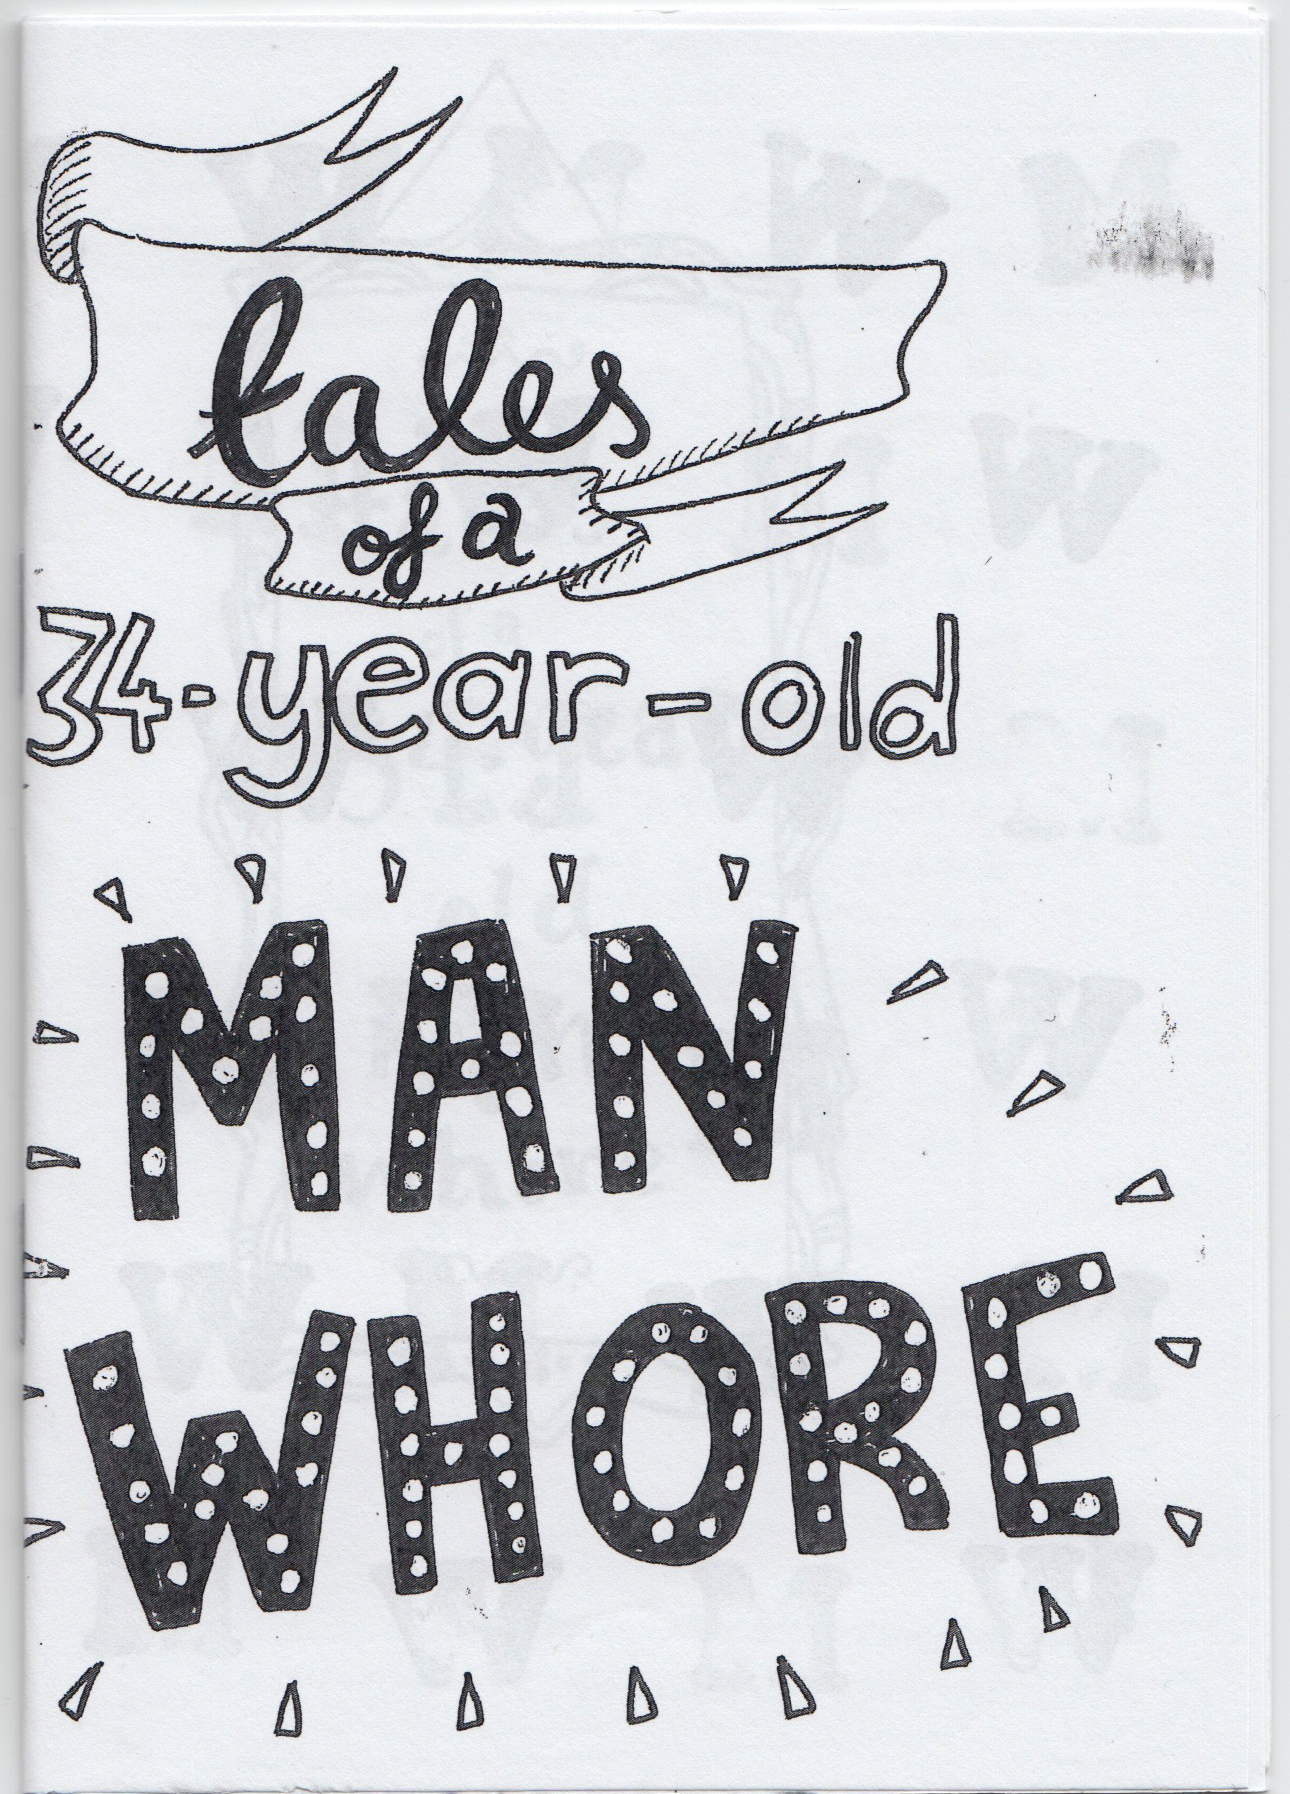 tales
of a
34-year-old
MAN
WHORE